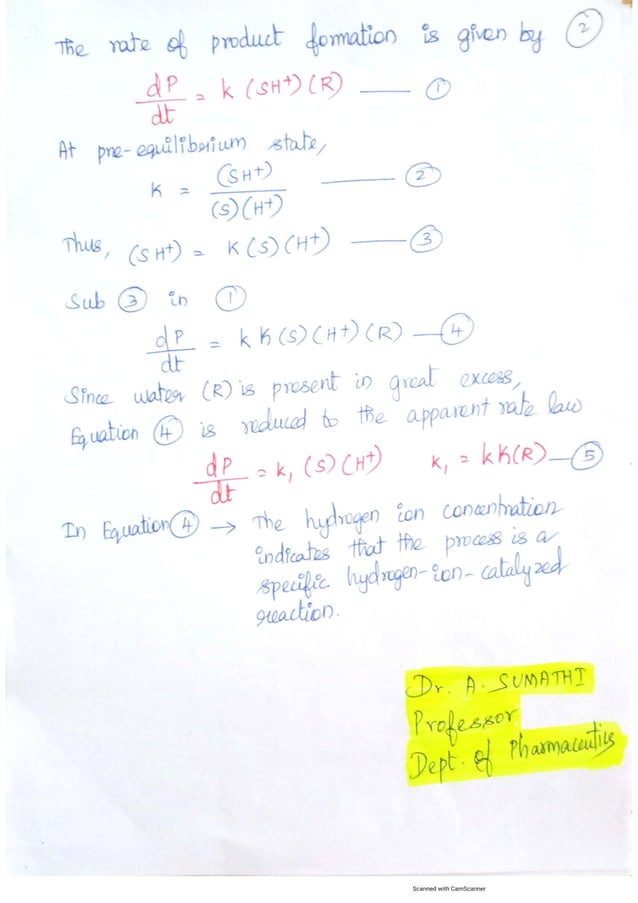 The rate of product formation is given by ②
dP/dt = k (SH⁺) (R) —— ①
At pre-equilibrium state,
K = (SH⁺) / (S)(H⁺) —— ②
Thus, (SH⁺) = K (S) (H⁺) —— ③
Sub ③ in ①
dP/dt = k K (S) (H⁺) (R) — ④
Since water (R) is present in great excess,
Equation ④ is reduced to the apparent rate law
dP/dt = k₁ (S) (H⁺) k₁ = kK(R) — ⑤
In Equation ④ → The hydrogen ion concentration
indicates that the process is a
specific hydrogen-ion-catalyzed
reaction.
Dr. A. SUMATHI
Professor
Dept. of Pharmaceutics
Scanned with CamScanner